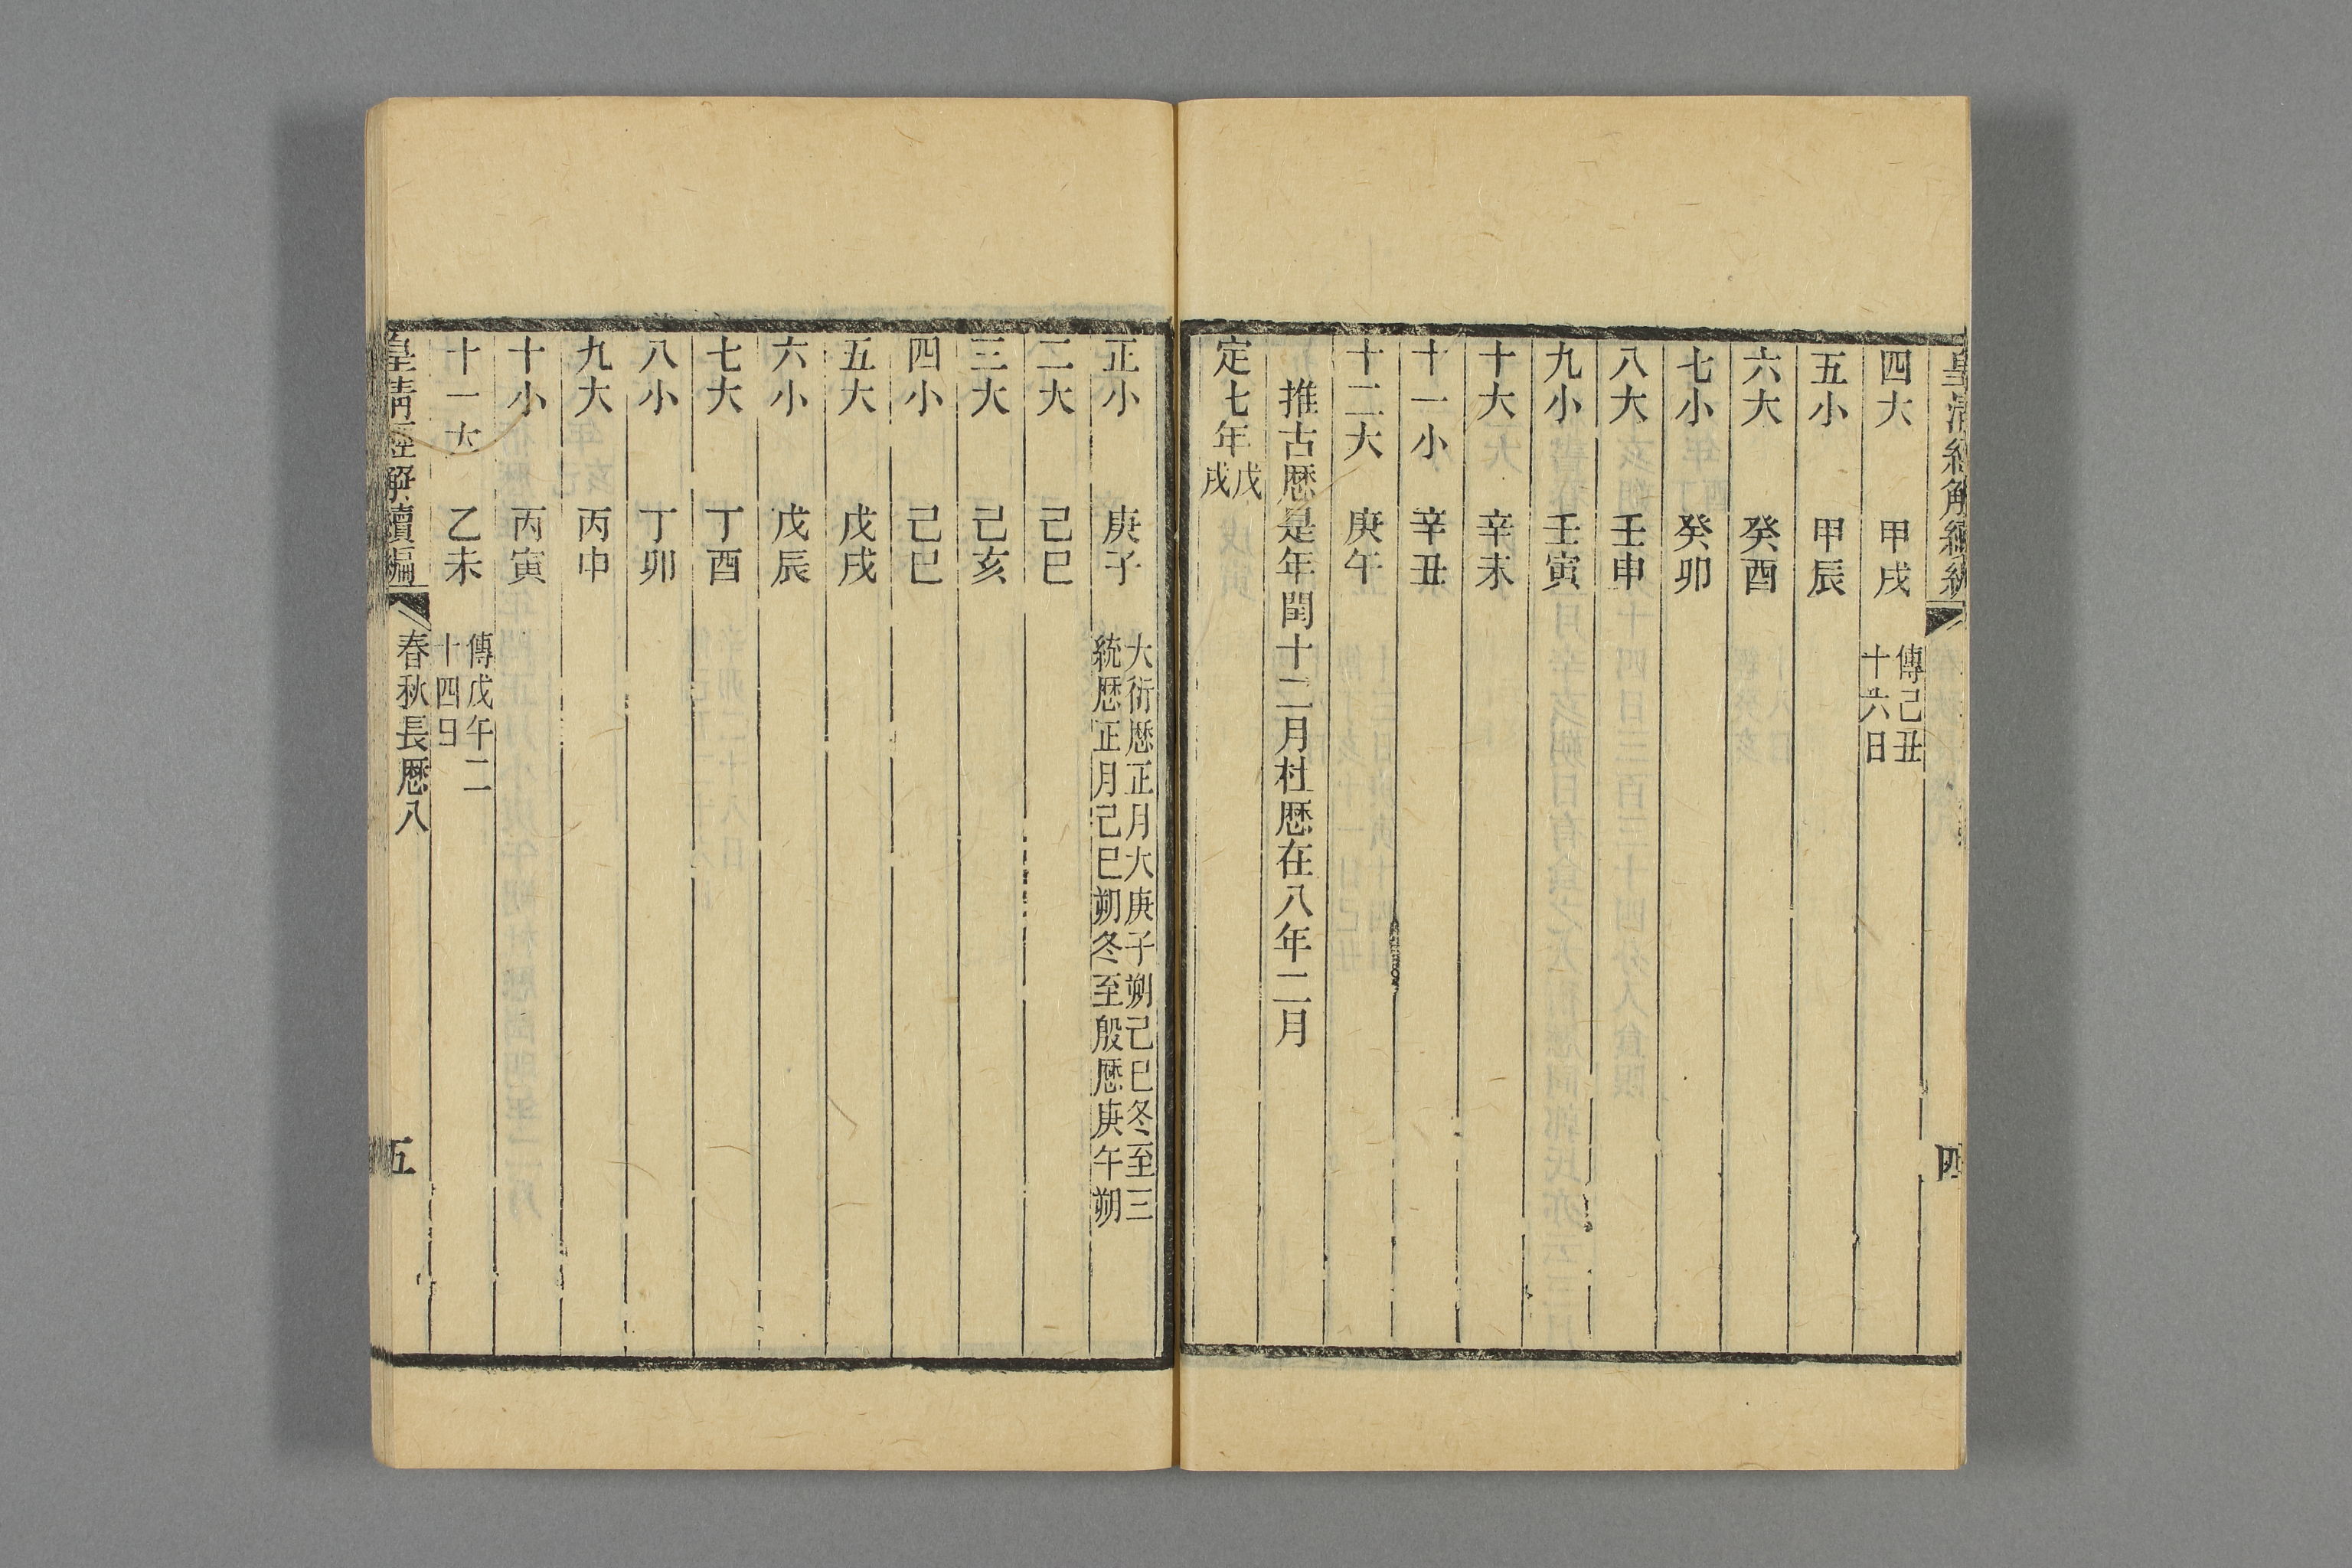 皇清經解續編
四
四大 甲戌 傳己丑十六日
五小 甲辰
六大 癸酉
七小 癸卯
八大 壬申
九小 壬寅
十大 辛未
十一小 辛丑
十二大 庚午
推古厯是年閏十二月杜厯在八年二月
定七年戊戌
正小 庚子 大衍厯正月大庚子朔己巳冬至三統厯正月己巳朔冬至殷厯庚午朔
二大 己巳
三大 己亥
四小 己巳
五大 戊戌
六小 戊辰
七大 丁酉
八小 丁卯
九大 丙申
十小 丙寅
十一大 乙未 傳戊午二十四日
皇清經解續編 春秋長厯八 五